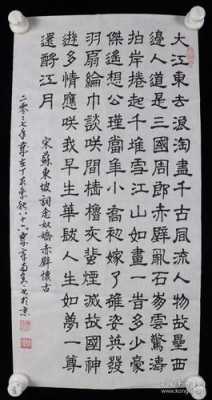 大江東去浪淘盡千古風流人物故壘西
邊人道是三國周郎赤壁亂石崩雲驚濤
拍岸捲起千堆雪江山如畫一旹多少豪
傑遙想公瑾當年小喬初嫁了雄姿英發
羽扇綸巾談咲間檣櫓灰蜚煙滅故國神
遊多情應咲我早生華髮人生如夢一尊
還酹江月
宋蘇東坡詞念奴嬌赤壁懷古
二零一七年歲在丁酉秋八十六叟書於京